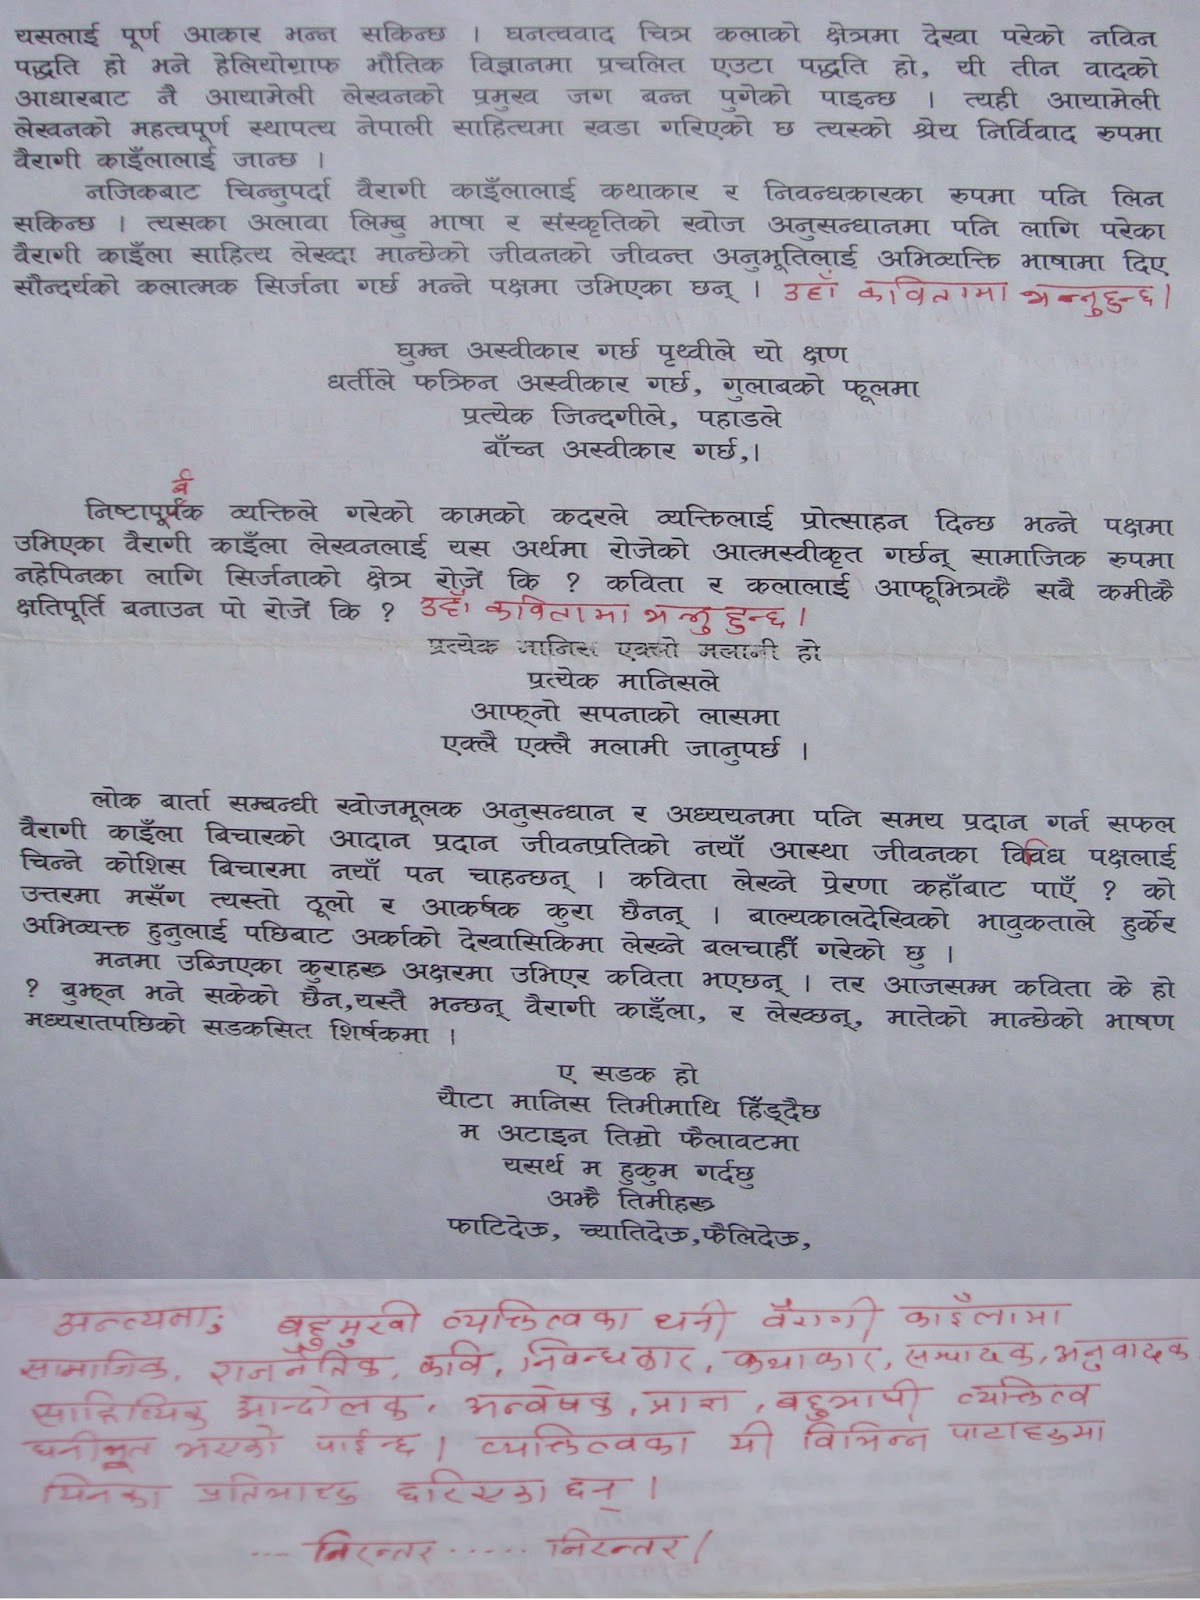 यसलाई पूर्ण आकार भन्न सकिन्छ । घनत्ववाद चित्र कलाको क्षेत्रमा देखा परेको नविन
पद्धति हो भने हेलियोग्राफ भौतिक विज्ञानमा प्रचलित एउटा पद्धति हो, यी तीन वादको
आधारबाट नै आयामेली लेखनको प्रमुख जग बन्न पुगेको पाइन्छ । त्यही आयामेली
लेखनको महत्वपूर्ण स्थापत्य नेपाली साहित्यमा खडा गरिएको छ त्यस्को श्रेय निर्विवाद रुपमा
वैरागी काइँलालाई जान्छ ।
नजिकबाट चिन्नुपर्दा वैरागी काइँलालाई कथाकार र निवन्धकारका रुपमा पनि लिन
सकिन्छ । त्यसका अलावा लिम्बु भाषा र संस्कृतिको खोज अनुसन्धानमा पनि लागि परेका
वैरागी काइँला साहित्य लेख्दा मान्छेको जीवनको जीवन्त अनुभूतिलाई अभिव्यक्ति भाषामा दिए
सौन्दर्यको कलात्मक सिर्जना गर्छ भन्ने पक्षमा उभिएका छन् । उहाँ कवितामा भन्नुहुन्छ।
घुम्न अस्वीकार गर्छ पृथ्वीले यो क्षण
धर्तीले फक्रिन अस्वीकार गर्छ, गुलाबको फूलमा
प्रत्येक जिन्दगीले, पहाडले
बाँच्न अस्वीकार गर्छ,।
र्ब
निष्टापूर्पक व्यक्तिले गरेको कामको कदरले व्यक्तिलाई प्रोत्साहन दिन्छ भन्ने पक्षमा
उभिएका वैरागी काइँला लेखनलाई यस अर्थमा रोजेको आत्मस्वीकृत गर्छन् सामाजिक रुपमा
नहेपिनका लागि सिर्जनाको क्षेत्र रोजें कि ? कविता र कलालाई आफूभित्रकै सबै कमीकै
क्षतिपूर्ति बनाउन पो रोजें कि ? उहाँ कवितामा भन्नुहुन्छ।
प्रत्येक मानिस एक्लो मलामी हो
प्रत्येक मानिसले
आफ्नो सपनाको लासमा
एक्लै एक्लै मलामी जानुपर्छ ।
लोक बार्ता सम्बन्धी खोजमूलक अनुसन्धान र अध्ययनमा पनि समय प्रदान गर्न सफल
वैरागी काइँला बिचारको आदान प्रदान जीवनप्रतिको नयाँ आस्था जीवनका विविध पक्षलाई
चिन्ने कोशिस बिचारमा नयाँ पन चाहन्छन् । कविता लेख्ने प्रेरणा कहाँबाट पाएँ ? को
उत्तरमा मसँग त्यस्तो ठूलो र आकर्षक कुरा छैनन् । बाल्यकालदेखिको भावुकताले हुर्केर
अभिव्यक्त हुनुलाई पछिबाट अर्काको देखासिकिमा लेख्ने बलचाहीँ गरेको छु ।
मनमा उब्जिएका कुराहरू अक्षरमा उभिएर कविता भएछन् । तर आजसम्म कविता के हो
? बुझ्न भने सकेको छैन,यस्तै भन्छन् वैरागी काइँला, र लेख्छन्, मातेको मान्छेको भाषण
मध्यरातपछिको सडकसित शिर्षकमा ।
ए सडक हो
यौटा मानिस तिमीमाथि हिँड्दैछ
म अटाइन तिम्रो फैलावटमा
यसर्थ म हुकुम गर्दछु
अझै तिमीहरू
फाटिदेऊ, च्यातिदेऊ,फैलिदेऊ,
अन्त्यमा; बहुमुखी व्यक्तित्वका धनी वैरागी काइँलामा
सामाजिक, राजनैतिक, कवि, निवन्धकार, कथाकार, सम्पादक, अनुवादक
साहित्यिक आन्दोलक, अन्वेषक, प्राज्ञ, बहुभाषी व्यक्तित्व
घनीभूत भएको पाईन्छ। व्यक्तित्वका यी विभिन्न पाटाहरुमा
यिनका प्रतिभाहरु छरिएका छन् ।
... निरन्तर ..... निरन्तर।